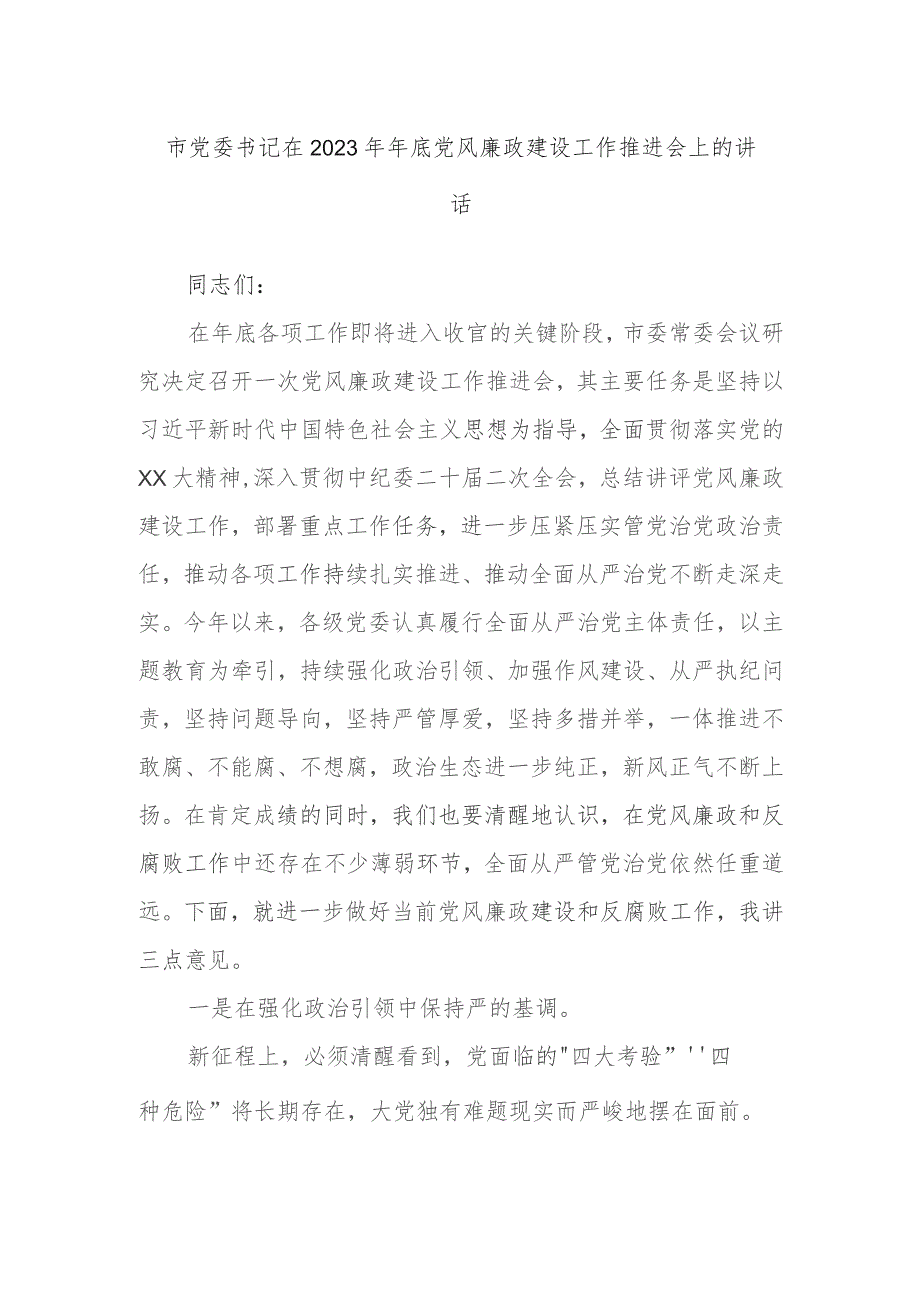 市党委书记在 2023 年年底党风廉政建设工作推进会上的讲
话
同志们：
在年底各项工作即将进入收官的关键阶段，市委常委会议研
究决定召开一次党风廉政建设工作推进会，其主要任务是坚持以
习近平新时代中国特色社会主义思想为指导，全面贯彻落实党的
XX 大精神,深入贯彻中纪委二十届二次全会，总结讲评党风廉政
建设工作，部署重点工作任务，进一步压紧压实管党治党政治责
任，推动各项工作持续扎实推进、推动全面从严治党不断走深走
实。今年以来，各级党委认真履行全面从严治党主体责任，以主
题教育为牵引，持续强化政治引领、加强作风建设、从严执纪问
责，坚持问题导向，坚持严管厚爱，坚持多措并举，一体推进不
敢腐、不能腐、不想腐，政治生态进一步纯正，新风正气不断上
扬。在肯定成绩的同时，我们也要清醒地认识，在党风廉政和反
腐败工作中还存在不少薄弱环节，全面从严管党治党依然任重道
远。下面，就进一步做好当前党风廉政建设和反腐败工作，我讲
三点意见。
一是在强化政治引领中保持严的基调。
新征程上，必须清醒看到，党面临的"四大考验”''四
种危险”将长期存在，大党独有难题现实而严峻地摆在面前。